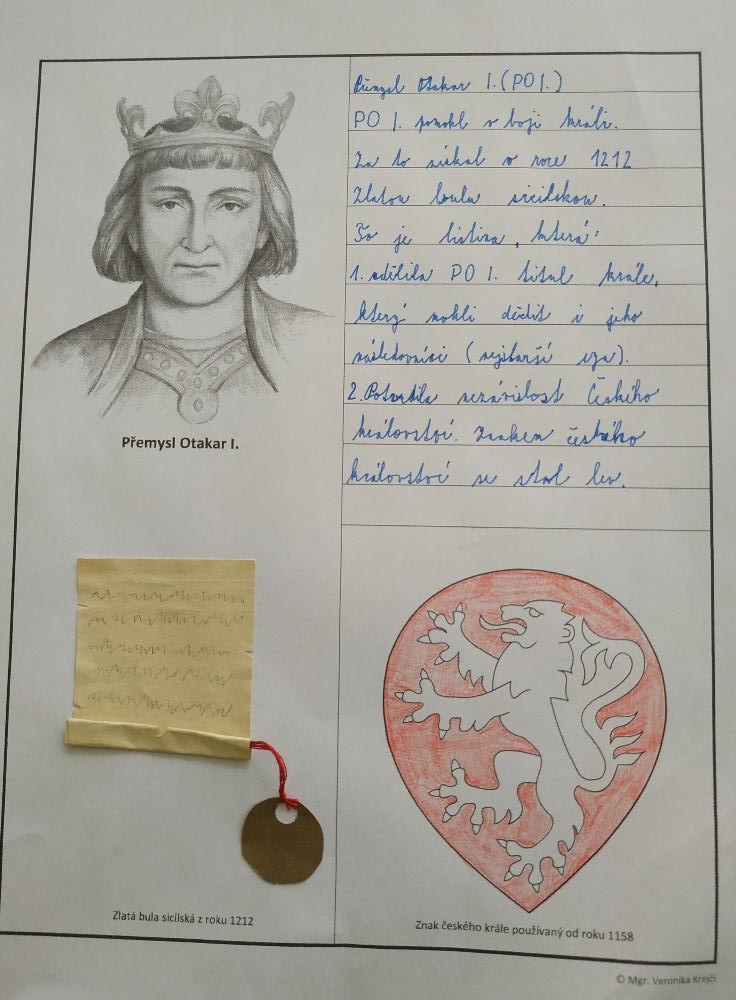 Přemysl Otakar I. (PO I.)
PO I. pomohl v boji králi.
Za to získal v roce 1212
Zlatou bulu sicilskou.
To je listina, která:
1. udělila PO I. titul krále,
který mohli dědit i jeho
následovníci (nejstarší syn).
2. Potvrdila nezávislost Českého
království. Znakem českého
království se stal lev.
Přemysl Otakar I.
Zlatá bula sicilská z roku 1212
Znak českého krále používaný od roku 1158
© Mgr. Veronika Krejčí